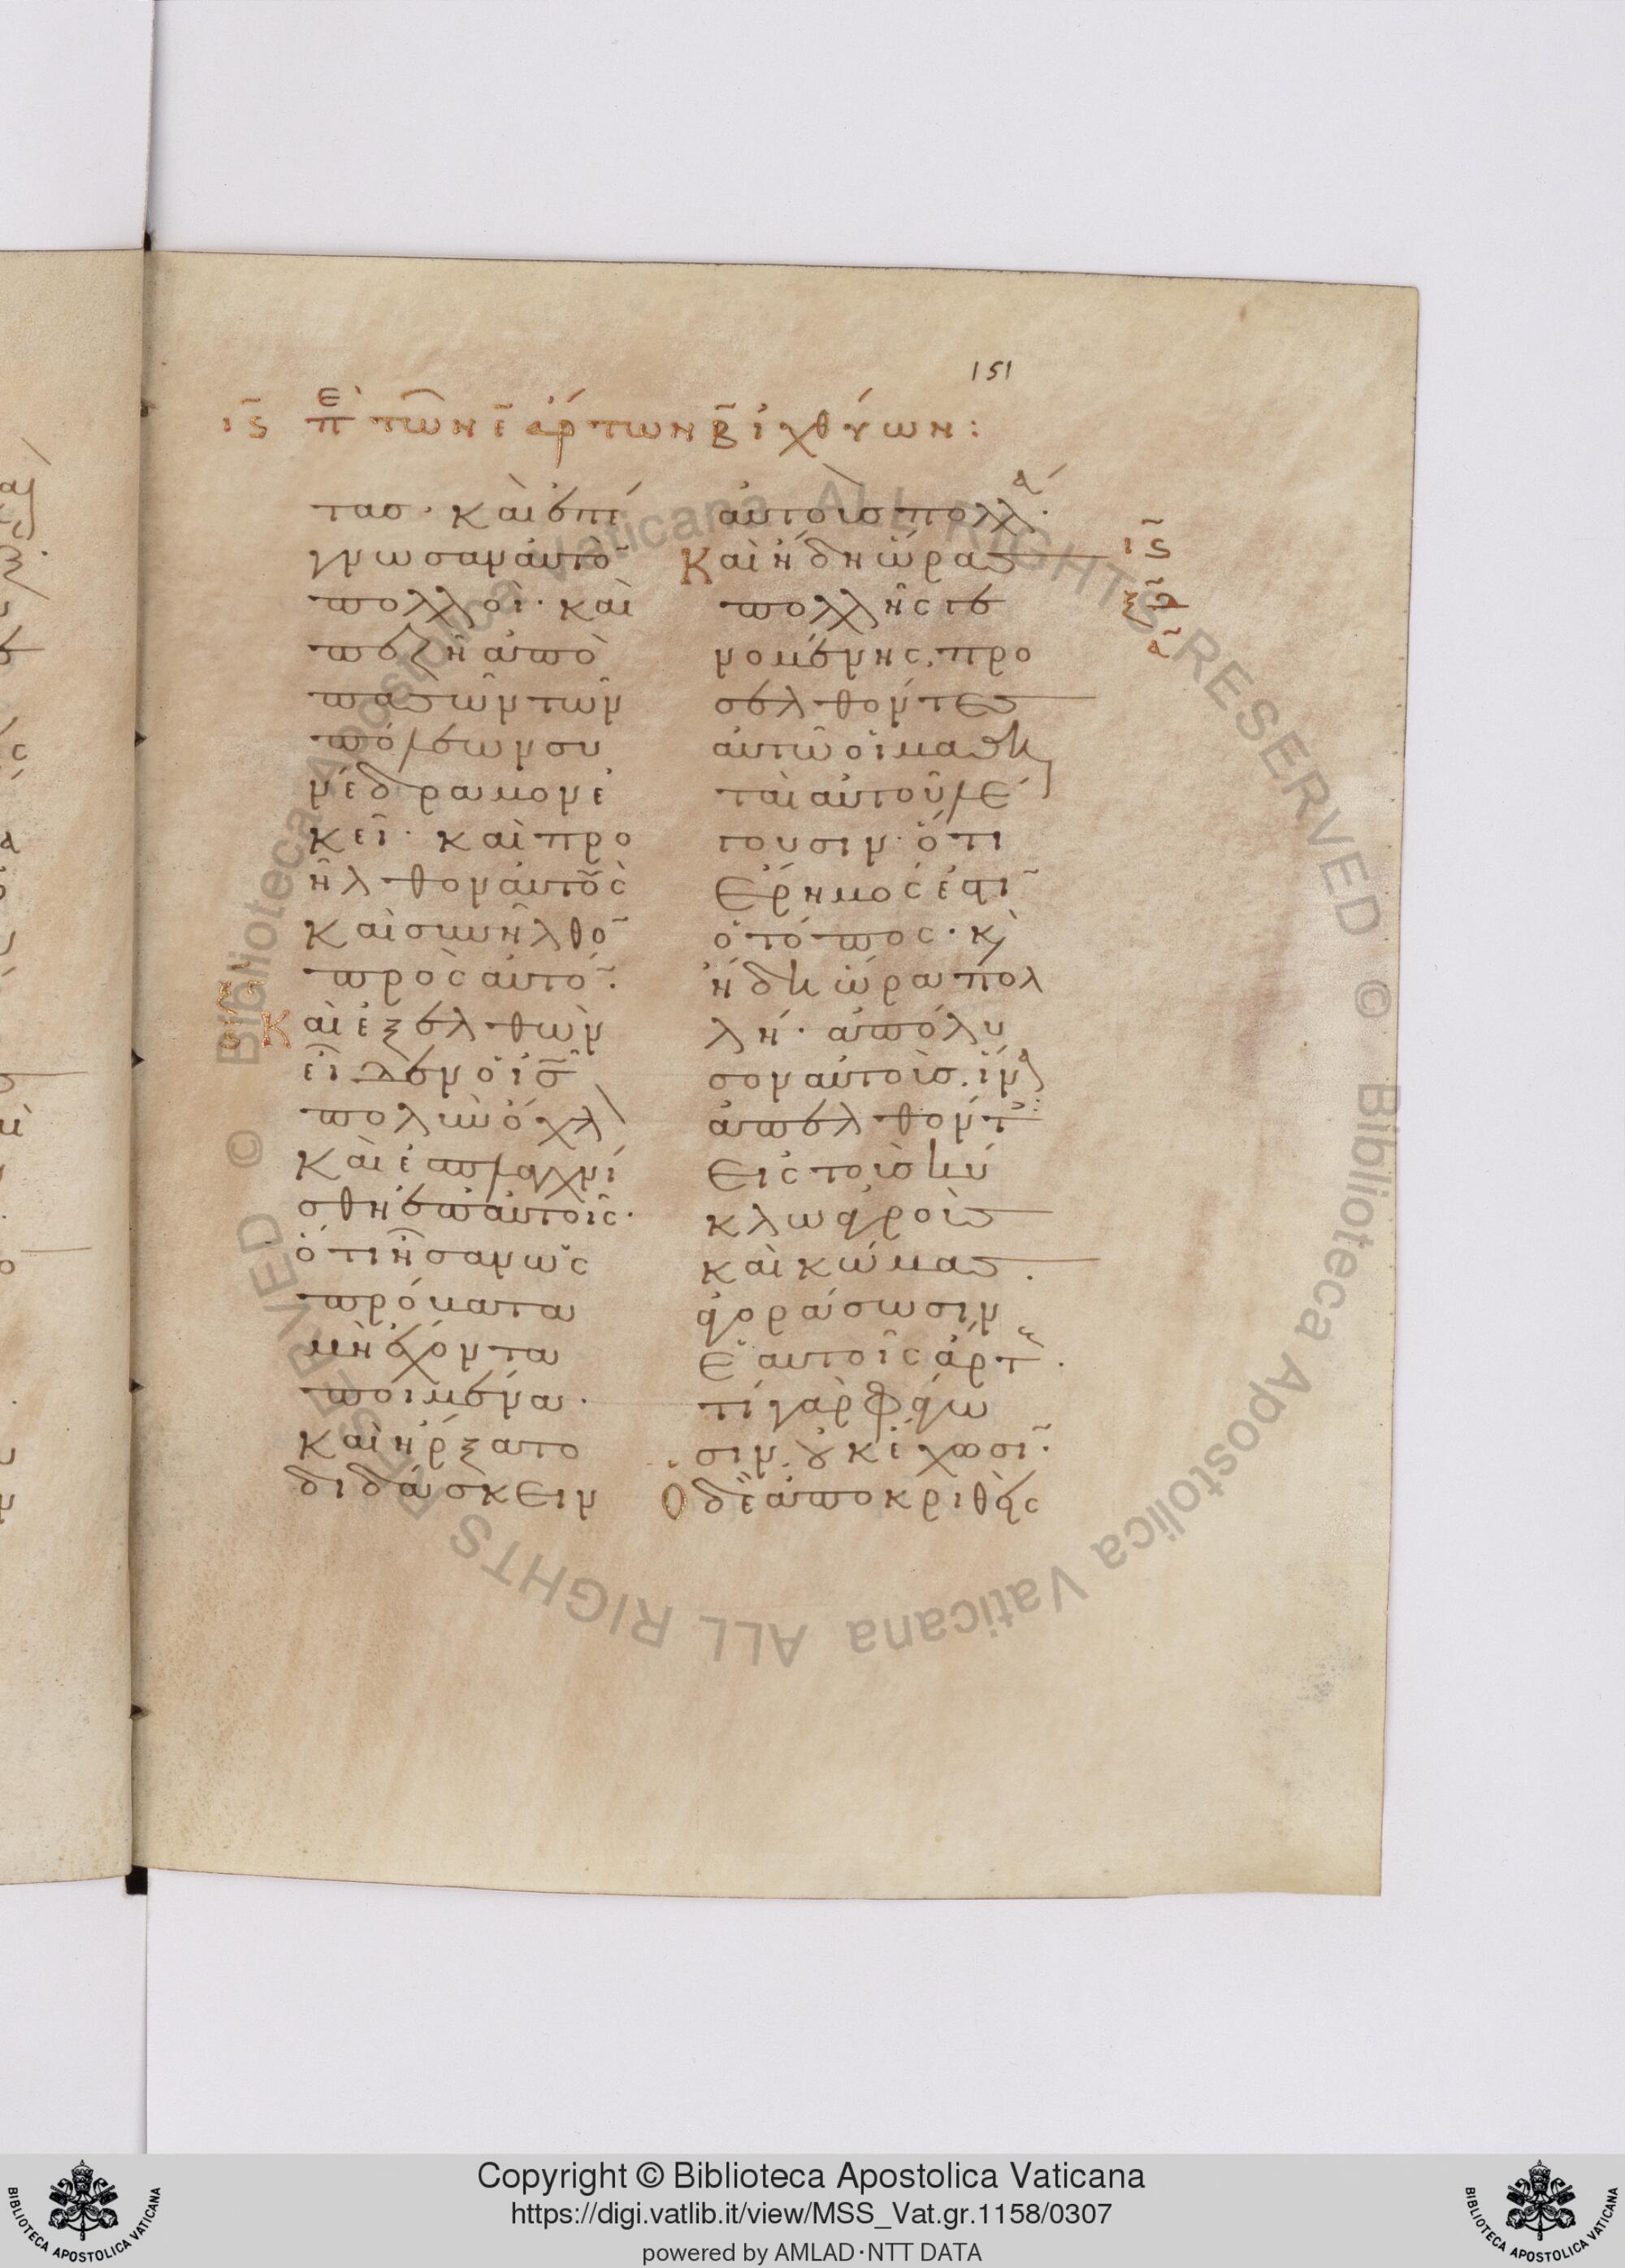 151
ις̄ επὶ τῶν ε̄ ἄρτων β̄ ἰχθύων:
τας· καὶ ἐπέ
γνωσαν αὐτὸ̄
πολλοί· καὶ
πεζῇ ἀπὸ
πασῶν τῶν
πόλεων συ
νέδραμον ἐ
κεῖ· καὶ προ
ῆλθον αὐτοὺς
καὶ συνῆλθο̄
πρὸς αὐτό̄·
Καὶ ἐξελθὼν
εἶδεν ὁ ις̄
πολὺν ὄχλ
καὶ ἐσπλαγχνί
σθη ἐπ' αὐτοῖς·
ὅτι ἦσαν ὡς
πρόβατα
μὴ ἔχοντα
ποιμένα·
καὶ ἤρξατο
διδάσκειν
αὐτοὺς πολλά·
Καὶ ἤδη ὥρας
πολλῆς γε
νομένης, προ
σελθόντες
αὐτῷ οἱ μαθη
ταὶ αὐτοῦ λέ
γουσιν· ὅτι
Ἔρημός ἐστῑ
ὁ τόπος· κ̀
ἤδη ὥρα πολ
λή· ἀπόλυ
σον αὐτούς. ἵνα
ἀπελθόντ:
εἰς τοὺς κύ
κλω ἀγροὺς
καὶ κώμας.
ἀγοράσωσιν
ἑαυτοῖς ἄρτ.
τί γὰρ φάγω
σιν. οὐκ ἔχωσῑ·
Ὁ δὲ ἀποκριθεὶς
ις̄
ξδ̄
ᾱ
Copyright © Biblioteca Apostolica Vaticana
https://digi.vatlib.it/view/MSS_Vat.gr.1158/0307
powered by AMLAD·NTT DATA
BIBLIOTECA APOSTOLICA VATICANA
BIBLIOTECA APOSTOLICA VATICANA
© Biblioteca Apostolica Vaticana ALL RIGHTS RESERVED © Biblioteca Apostolica Vaticana ALL RIGHTS RESERVED